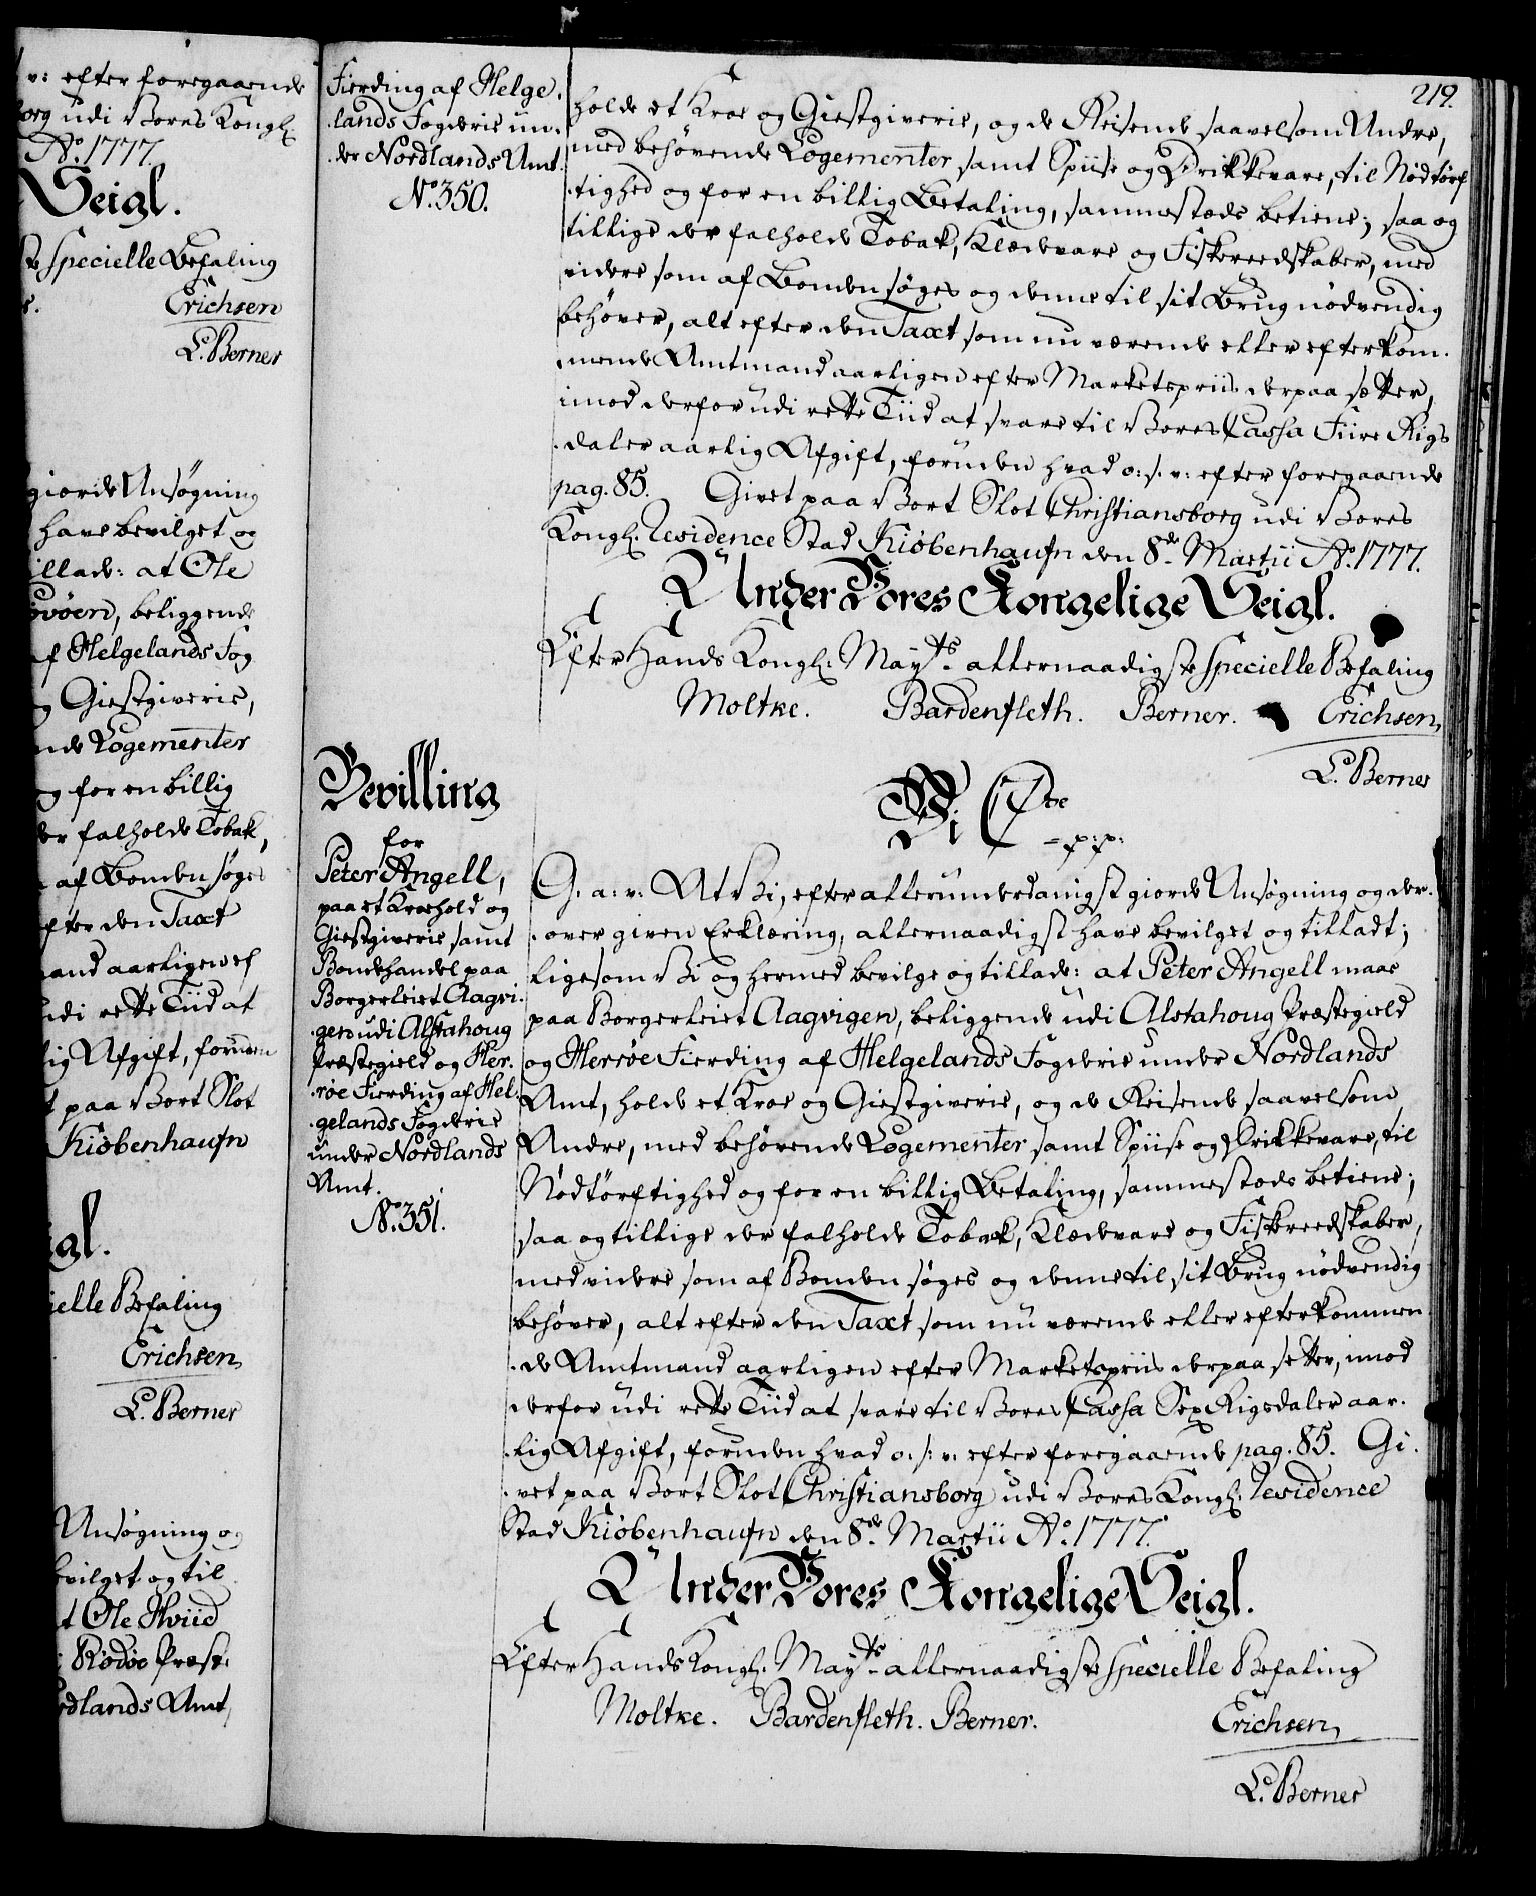 v: efter foregaaende
borg udi Vores Kongl:
Ao. 1777.
Seigl.
ste Specielle Befaling
Erichsen
L. Berner
giorde Ansøgning
have bevilget og
illade: at Ole
vöen, beliggende
af Helgelands Fog
og Giestgiverie,
nde Logementer
og for en billig
der falholde Tobak,
af Bonden søges
efter den Taxt
mand aarligen ef
udi rette Tiid at
lig Afgift, foruden
t paa Vort Slot
Kiöbenhaufn
igl.
ielle Befaling
Erichsen
L. Berner
Ansøgning og
bevilget og til
t Ole Hviid
Rödöe Præste
rdlands Amt,
219.
Fierding af Helge-
lands Fogderie un-
der Nordlands Amt.
No. 350.
holde et Kroe og Giestgiverie, og de Reisende saavelsom Andre,
med behøvende Logementer samt Spiise og Drikkevare, til Nødtørf
tighed og for en billig Betaling, sammestæds betiene; saa og
tillige der falholde Tobak, Klædevare og Fiskereedskaber, med
videre som af Bonden søges og denne til sit Brug nødvendig
behøver, alt efter den Taxt som nu værende eller efterkom-
mende Amtmand aarligen efter Marketspriis derpaa sætter,
imod derfor udi rette Tiid at svare til Vores Cassa Fiire Rigs
daler aarlig Afgift, foruden hvad o: s: v: efter foregaaende
pag. 85. Givet paa Vort Slot Christiansborg udi Vores
Kongl: Residence Stad Kiöbenhaufn den 8de Martii Ao. 1777.
Under Vores Kongelige Seigl.
Efter Hands Kongl: Mayts allernaadigste Specielle Befaling
Moltke. Bardenfleth. Berner. Erichsen,
L. Berner
Bevilling
for
Peter Angell,
paa et Kroehold og
Giestgiverie samt
Bondehandel paa
Borgerleiet Aagvi-
gen udi Alstahoug
Præstegield og Her-
røe Fierding af Hel-
gelands Fogderie
under Nordlands
Amt.
No. 351.
Vi C 7de
= p: p:
G. a: v: At Vi, efter allerunderdanigst giorde Ansøgning og der-
over given Erklæring, allernaadigst have bevilget og tilladt;
ligesom Vi og hermed bevilge og tillade: at Peter Angell maae
paa Borgerleiet Aagvigen, beliggende udi Alstahoug Præstegield
og Herröe Fierding af Helgelands Fogderie under Nordlands
Amt, holde et Kroe og Giestgiverie, og de Reisende saavelsom
Andre, med behøvende Logementer samt Spiise og Drikkevare, til
Nødtørftighed og for en billig Betaling, sammestæds betiene;
saa og tillige der falholde Tobak, Klædevare og Fiskereedskaber,
med videre som af Bonden søges og denne til sit Brug nødvendig
behøver, alt efter den Taxt som nu værende eller efterkommen
de Amtmand aarligen efter Marketspriis derpaa setter, imod
derfor udi rette Tiid at svare til Vores Cassa Sex Rigsdaler aar-
lig Afgift, foruden hvad o: s: v: efter foregaaende pag. 85. Gi-
vet paa Vort Slot Christiansborg udi Vores Kongl: Residence
Stad Kiöbenhaufn den 8de Martii Ao. 1777.
Under Vores Kongelige Seigl.
Efter Hands Kongl: Mayts allernaadigste Specielle Befaling
Moltke. Bardenfleth. Berner. Erichsen,
L. Berner